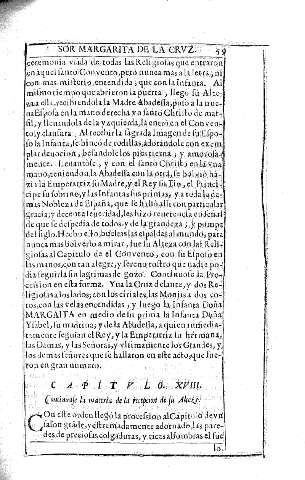 SOR MARGARITA DE LA CRVZ. 59
ceremonia usada de todas las Religiosas que entraron
en aquel santo Convento, pero nunca mas a la letra, ni
con mas misterio, entendida, que con la Infanta. Al
mismo tiempo que abrieron la puerta, llego su Alteza
a ella, recibiendola la Madre Abadessa, puso a la nueva
Esposa en la mano derecha un santo Christo de marfil,
y llevandola de la izquierda, la entrò en el Convento,
y clausura. Al recibir la sagrada Imagen de su Esposo
la Infanta, se hincò de rodillas, adorandole con exemplar
devocion, besandole los pies tierna, y amorosamente.
Levantòse, y con el santo Christo en la una
mano, teniendo la Abadessa con la otra, se bolvio hazia
la Emperatriz su Madre, y el Rey su Tio, el Principe
su sobrino, y las Infantas sus primas, y a toda la demas
Nobleza de España, que se hallò alli: con particular
gracia, y decente serenidad, les hizo reverencia en señal
de que se despedia de todos, y de la grandeza, y pompa
del siglo. Hecho esto, bueltas las espaldas al mundo, para
nunca mas bolverlo a mirar, fue su Alteza con las Religiosas
al Capitulo de el Convento, con su Esposo en
las manos, con tan alegre, y sereno rostro que nadie podia
seguirla sin lagrimas de gozo. Continuòse la Procession
en esta forma. Yva la Cruz delante, y dos Religiosas
a los lados, con los ciriales, las Monjas a dos coros,
con las velas encendidas, y luego la Infanta Doña
MARGARITA en medio de su prima la Infanta Doña
Ysabel, su madrina, y de la Abadessa, a quien inmediatamente
seguian el Rey, y la Emperatriz su hermana,
las Damas, y las Señoras, y vltimamente los Grandes, y
los demas señores que se hallaron en este acto, que fueron
en gran numero.
CAPITVLO. XVIII.
Continuase la materia de la recepcion de su Alteza.
CON este orden llegò la procession al Capitulo de vn
salon grãde, y estremadamente adornado, las paredes
de preciosas colgaduras, y ricas alfombras el suelo.